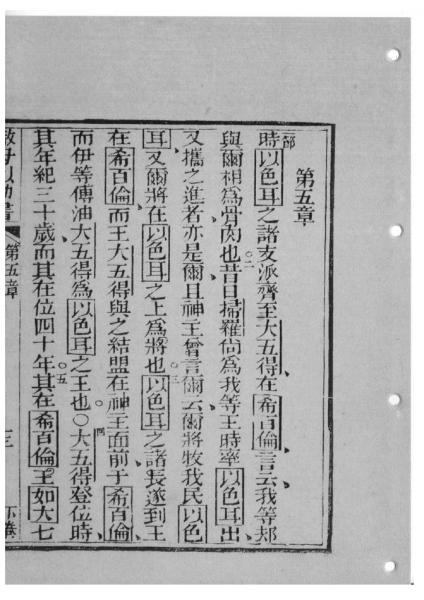 第五章
一節時以色耳之諸支派齊至大五得在希百倫言云我等却
與爾相爲骨肉也○二昔日掃羅尚爲我等王時率以色耳出
又攜之進者亦是爾且神王曾言爾云爾將牧我民以色
耳又爾將在以色耳之上爲將也○三以色耳之諸長遂到王
在希百倫而王大五得與之結盟在神王面前于希百倫
而伊等傅油大五得爲以色耳之王也○四大五得登位時
其年紀三十歲而其在位四十年○五其在希百倫王如大七
第五章 三